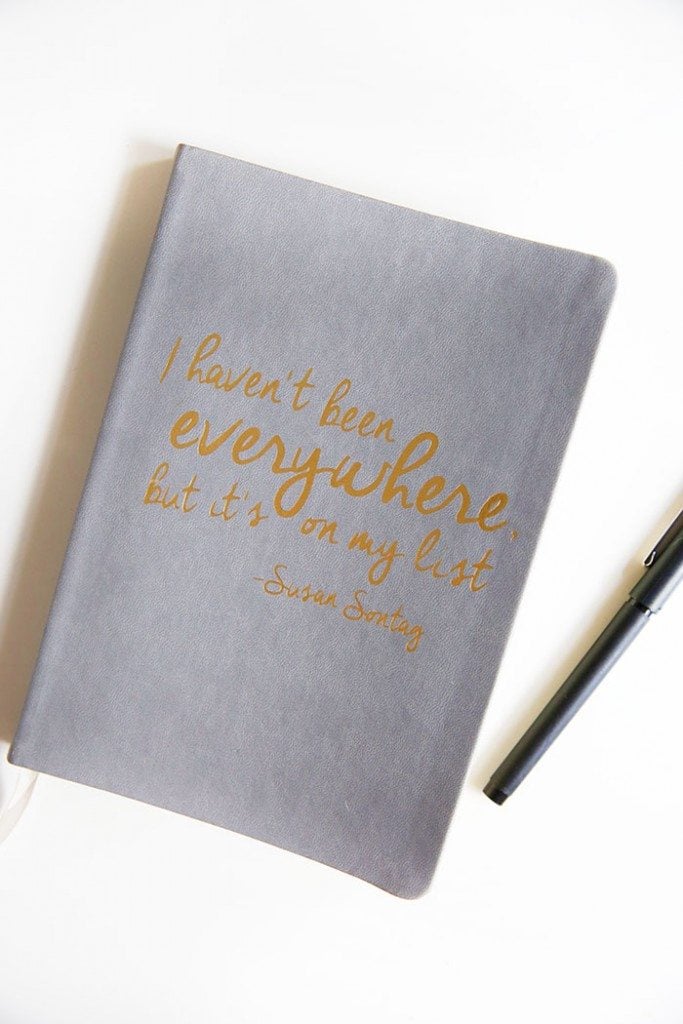 I haven't been
everywhere,
but it's on my list
-Susan Sontag